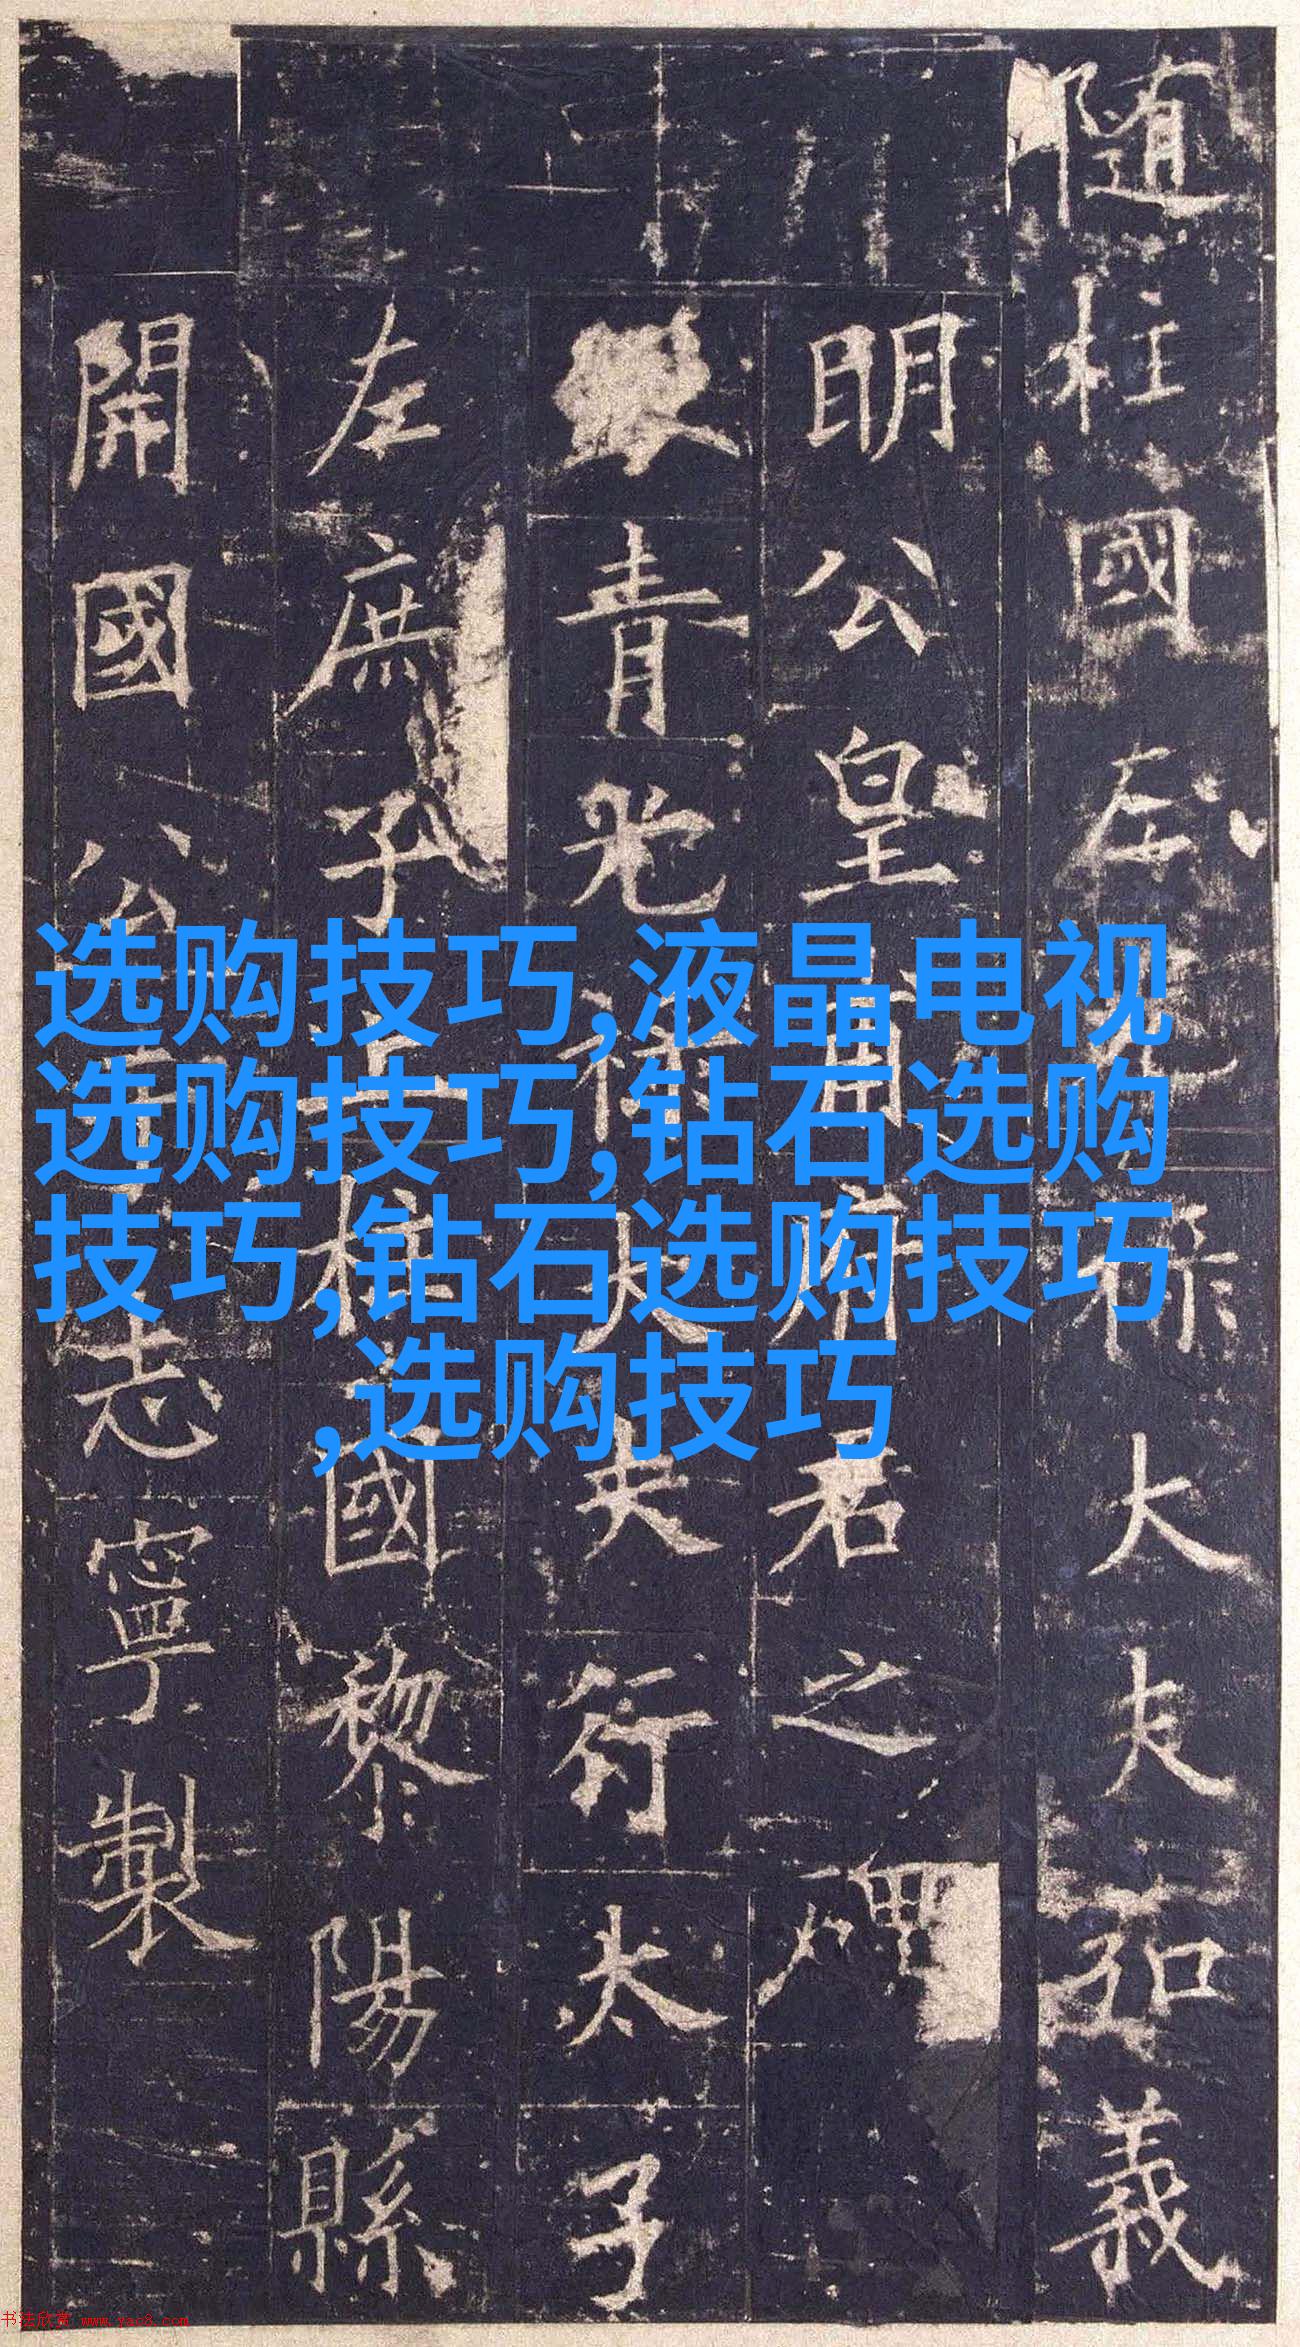 随柱國左光祿大夫弘義
明公皇甫府君之碑
銀青光祿大夫行太子
左庶子上柱國黎陽縣
開國公于志寧製
选购技巧,液晶电视
选购技巧,钻石选购
技巧,钻石选购技巧
,选购技巧
书法欣赏 www.yac8.com